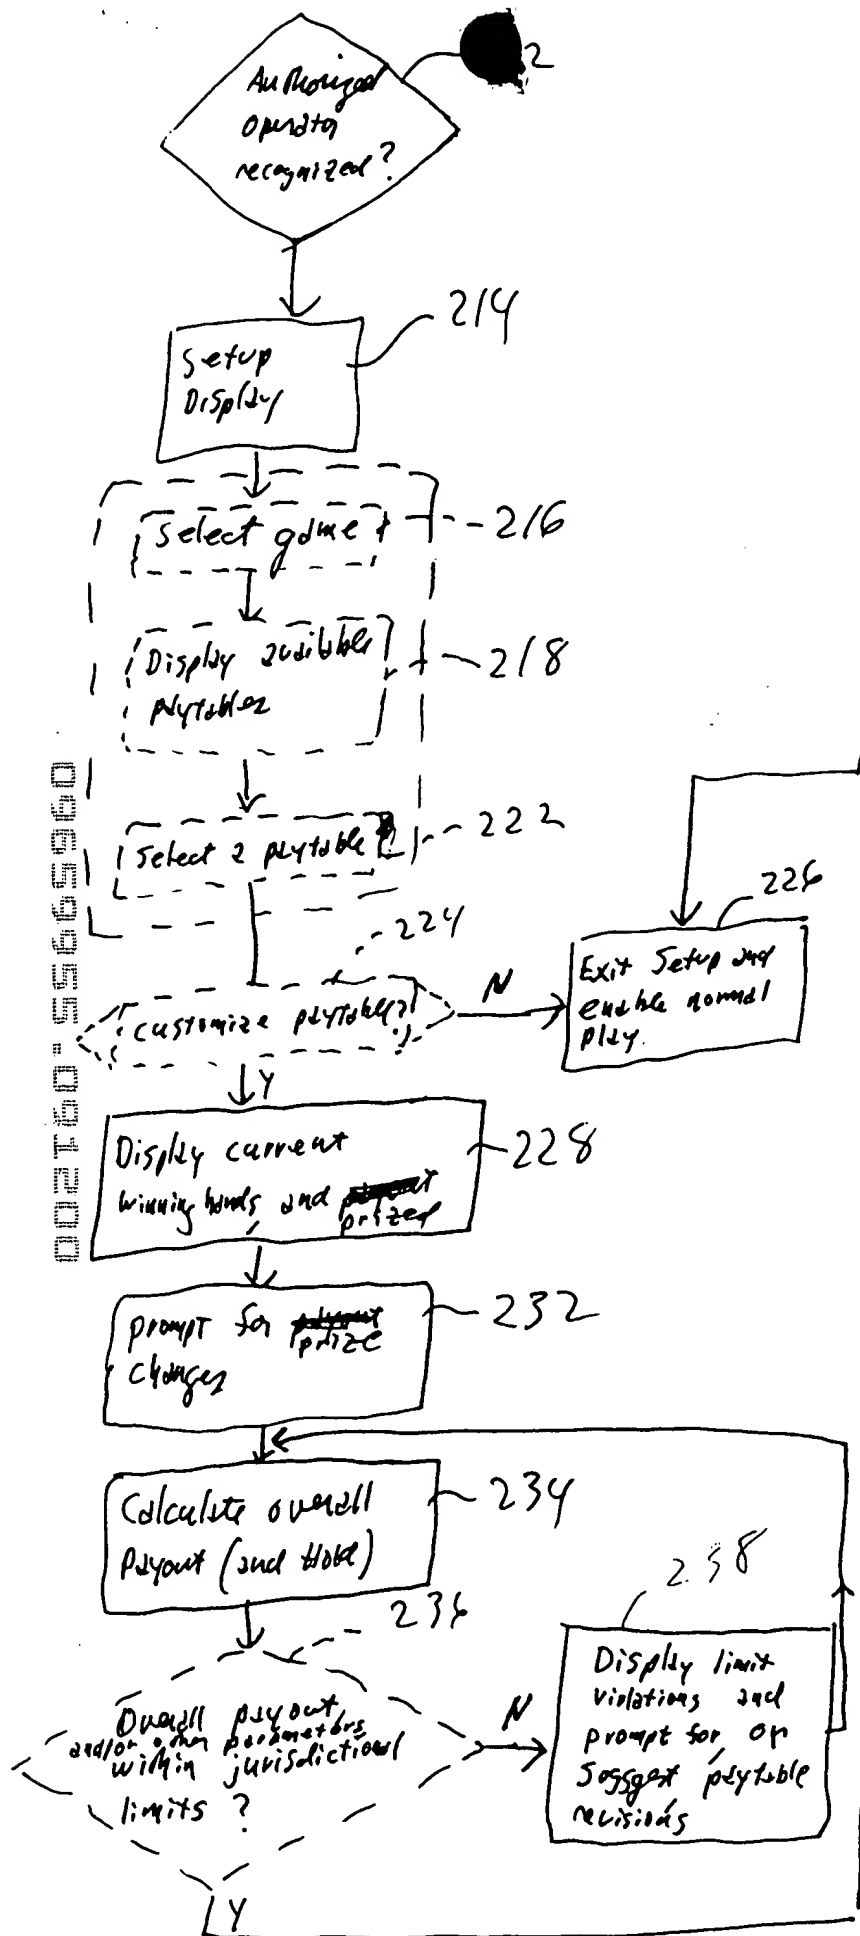 2
Authorized
operator
recognized?
214
Setup
Display
Select game
216
Display available
paytables
218
Select a paytable
222
224
Customize paytable?
N
226
Exit Setup and
enable normal
play.
Y
Display current
winning hands, and prized
228
prompt for prize
changes
232
Calculate overall
payout (and Hold)
234
236
Overall payout
and/or other parameters
within jurisdictional
limits?
N
238
Display limit
violations and
prompt for or
soggest paytable
revisions
Y
09659955.091200